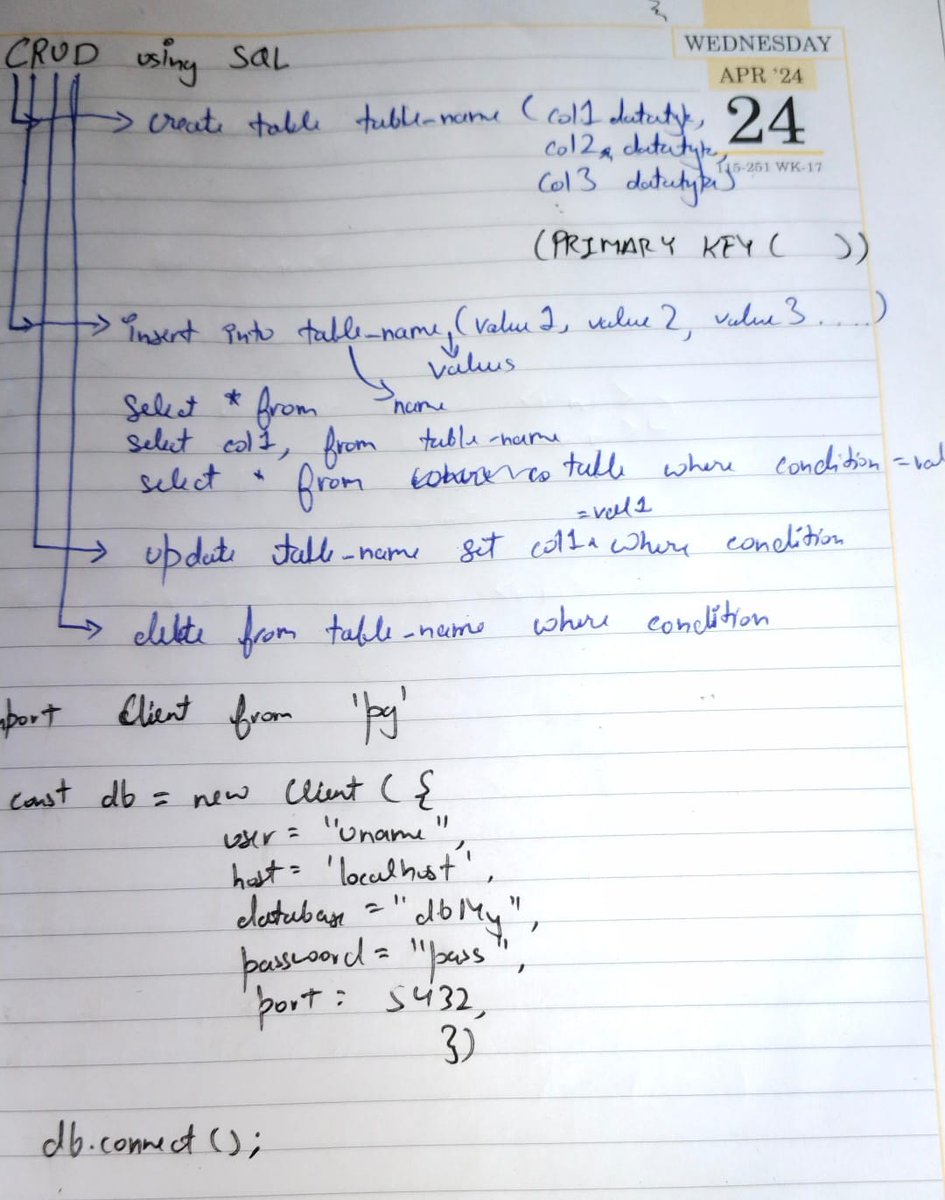 WEDNESDAY
APR '24
24
115-251 WK-17
CRUD using SQL
create table table-name (col1 datatype,
col2, datatype,
col3 datatype)
(PRIMARY KEY ( ))
insert into table_name (value 1, value 2, value 3 .....)
values
select * from name
select col1, from table-name
select * from table where condition = val
= val 1
update table-name set col1 where condition
delete from table-name where condition
port Client from 'pg'
const db = new Client ( {
user = "uname",
host = 'localhost',
database = "dbMy",
password = "pass",
port : 5432,
})
db.connect ();